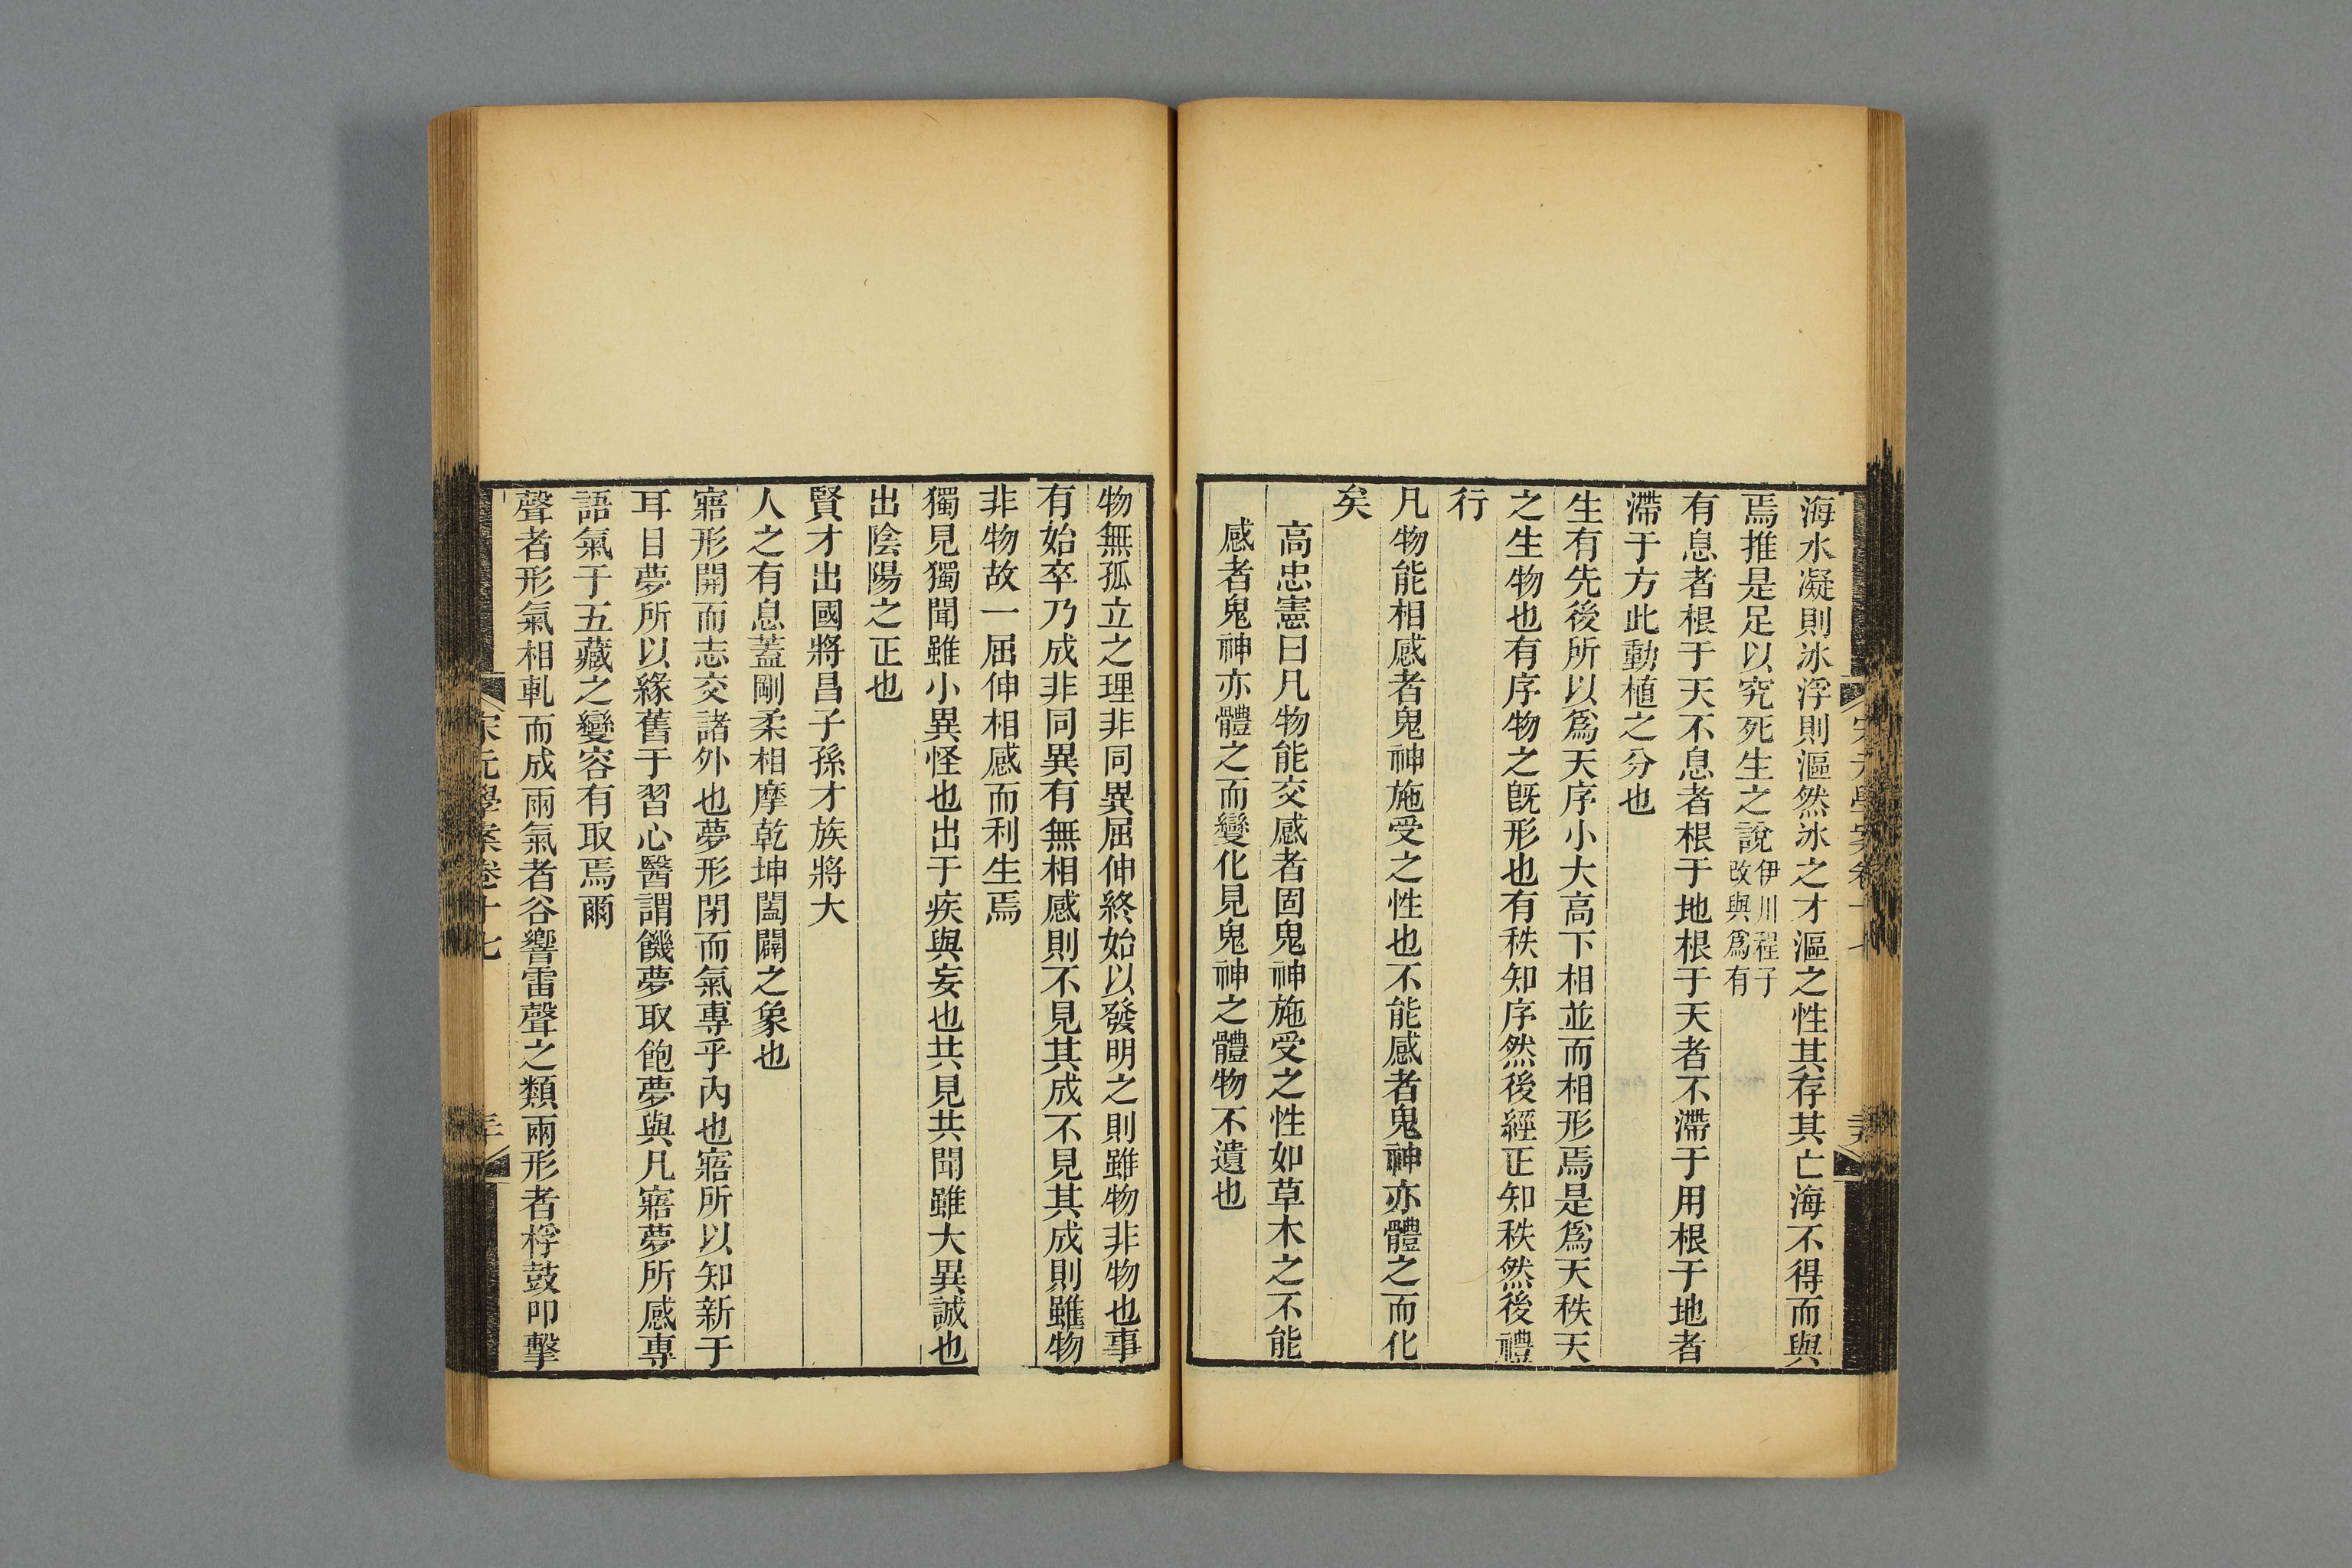 海水凝則冰浮則漚然冰之才漚之性其存其亡海不得而與
焉推是足以究死生之說伊川程子改與爲有
有息者根于天不息者根于地根于天者不滯于用根于地者
滯于方此動植之分也
生有先後所以爲天序小大高下相並而相形焉是爲天秩天
之生物也有序物之旣形也有秩知序然後經正知秩然後禮
行
凡物能相感者鬼神施受之性也不能感者鬼神亦體之而化
矣
高忠憲曰凡物能交感者固鬼神施受之性如草木之不能
感者鬼神亦體之而變化見鬼神之體物不遺也
物無孤立之理非同異屈伸終始以發明之則雖物非物也事
有始卒乃成非同異有無相感則不見其成不見其成則雖物
非物故一屈伸相感而利生焉
獨見獨聞雖小異怪也出于疾與妄也共見共聞雖大異誠也
出陰陽之正也
賢才出國將昌子孫才族將大
人之有息蓋剛柔相摩乾坤闔闢之象也
寤形開而志交諸外也夢形閉而氣專乎內也寤所以知新于
耳目夢所以緣舊于習心醫謂饑夢取飽夢與凡寤夢所感專
語氣于五藏之變容有取焉爾
聲者形氣相軋而成兩氣者谷響雷聲之類兩形者桴鼓叩擊
宋元學案卷十七